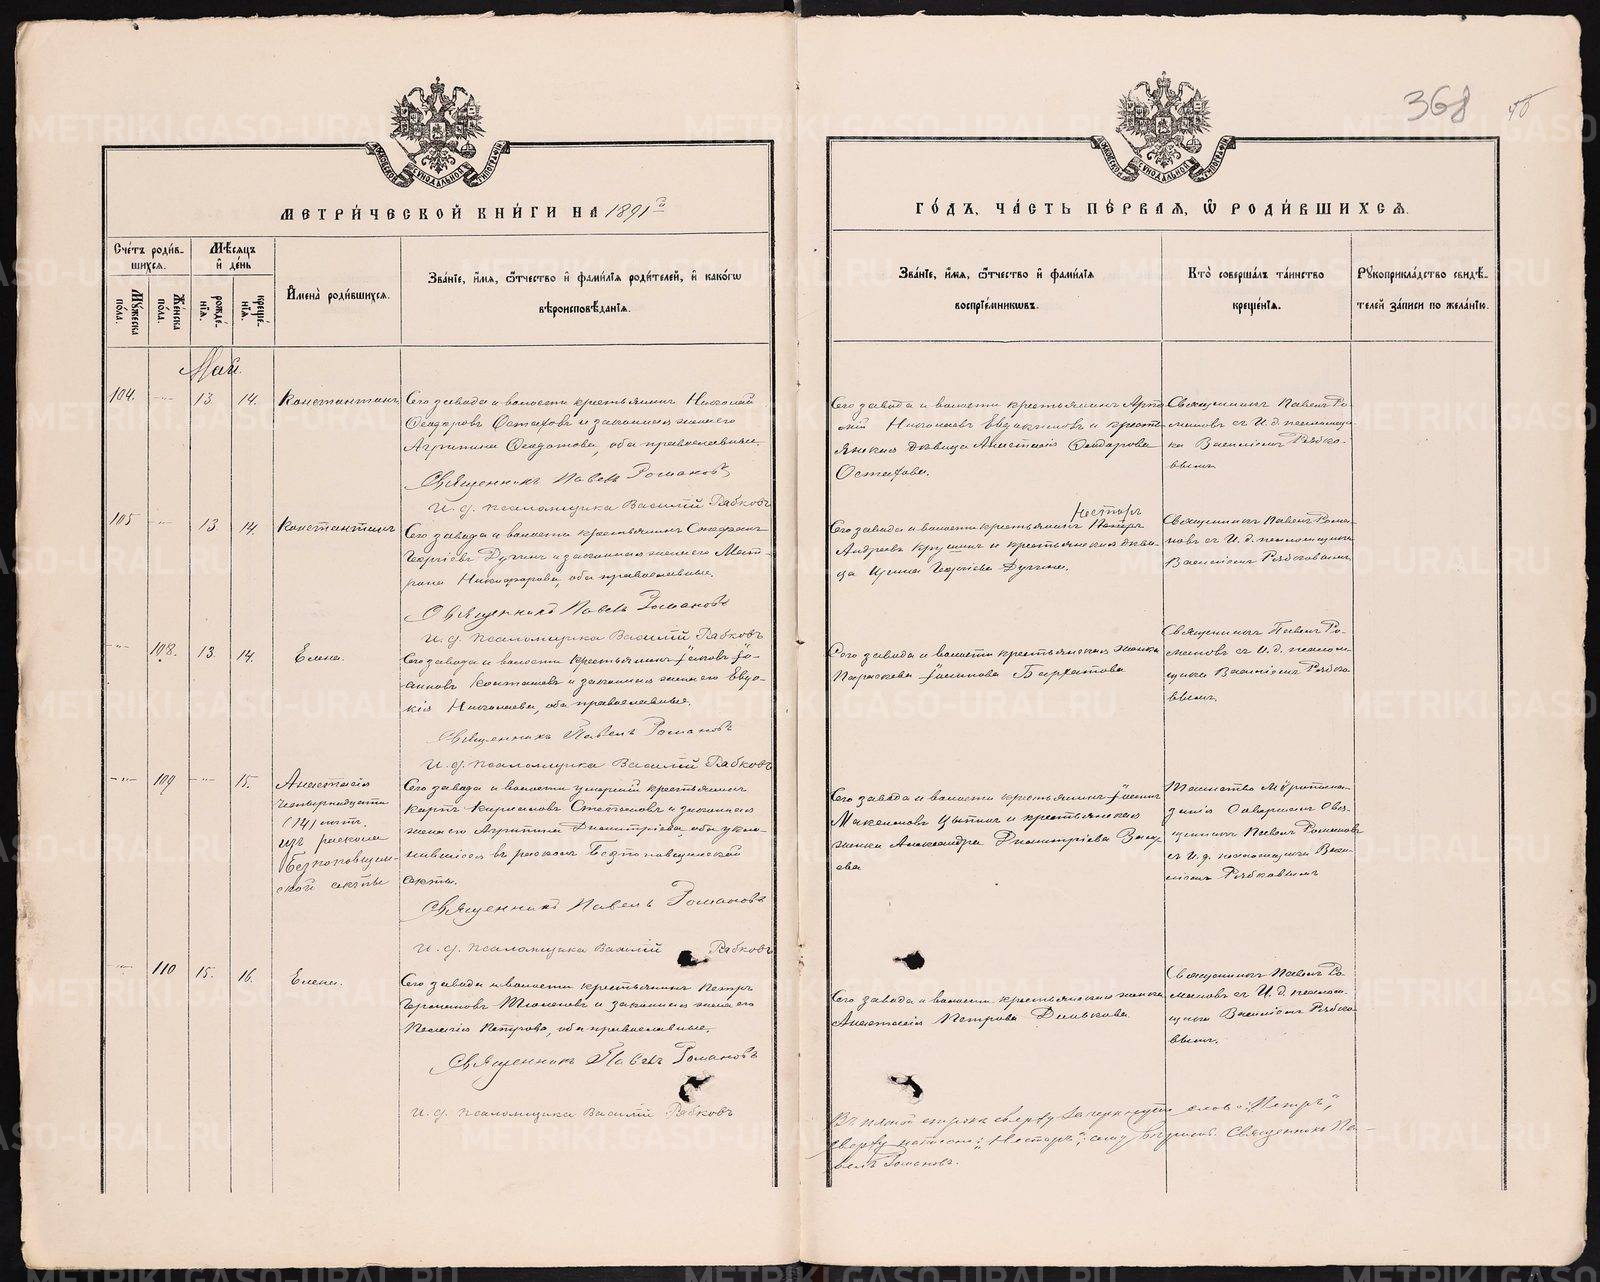 368
МЕТРИ́ЧЕСКОЙ КНИ́ГИ НА 1891 й
ГО́ДЪ, ЧА́СТЬ ПЕ́РВАЯ, Ѡ РОДИ́ВШИХСѦ.
Сче́тъ роди́в-
шихсѧ.
Му́жеска по́ла.
Же́нска по́ла.
Мѣ́сѧцъ и҆ де́нь
рожде́нїѧ.
креще́нїѧ.
И҆мена̀ роди́вшихсѧ.
Зва́нїе, и҆́мѧ, ѻ҆́тчество и҆ фами́лїѧ роди́телей, и҆ како́гѡ
вѣроисповѣ́данїѧ.
Зва́нїе, и҆́мѧ, ѻ҆́тчество и҆ фами́лїѧ
воспрїе́мникѡвъ.
Кто̀ соверша́лъ та́инство
креще́нїѧ.
Рꙋкоприкла́дство свидѣ́-
телей за́писи по жела́нїю.
Май.
104. 13 14. Константинъ
Сего завода и волости крестьянинъ Николай
Ѳеодоровъ Остафовъ и законная жена его
Агрипина Ѳеодотова, оба православные.
Священникъ Павелъ Романовъ
И. д. псаломщика Василій Рябковъ
Сего завода и волости крестьянинъ
Николаевъ Евдокимовъ и кресть-
янская дѣвица Анастасія Ѳеодорова
Остафова.
Священникъ Павелъ Ро-
мановъ съ И. д. псаломщи-
ка Василіемъ Рябко-
вымъ
105 13 14. Константинъ
Сего завода и волости крестьянинъ Стефанъ
Георгіевъ Дугинъ и законная жена его Мат-
рона Никифорова, оба православные.
Священникъ Павелъ Романовъ
И. д. псаломщика Василій Рябковъ
Несторъ
Сего завода и волости крестьянинъ Петръ
Андреевъ и крестьянская дѣви-
ца Ирина Георгіева Дугина.
Священникъ Павелъ Рома-
новъ съ И. д. псаломщика
Василіемъ Рябковымъ
108. 13 14. Елена.
Сего завода и волости крестьянинъ Іаковъ Іо-
анновъ и законная жена его Евдо-
кія Николаева, оба православные.
Священникъ Павелъ Романовъ
И. д. псаломщика Василій Рябковъ
Сего завода и волости крестьянская жонка
Параскева Бархатова
Священникъ Павелъ Ро-
мановъ съ И. д. псалом-
щика Василіемъ Рябко-
вымъ.
109 15. Анастасія
четырнадцати
(14) лѣтъ.
изъ раскола
безпоповщин-
ской секты
Сего завода и волости умершій крестьянинъ
Карпъ Степановъ и законная
жена его Агрипина Димитріева, оба укло-
нившіеся въ расколъ Безпоповщинской
секты.
Священникъ Павелъ Романовъ
И. д. псаломщика Василій Рябковъ
Сего завода и волости крестьянинъ
Максимовъ и крестьянская
жонка Александра Димитріева
Таинство Мѵропома-
занія Совершалъ Свя-
щенникъ Павелъ Романовъ
съ И. д. псаломщика Васи-
ліемъ Рябковымъ
110 15. 16. Елена.
Сего завода и волости крестьянинъ Петръ
и законная жена его
Пелагія, оба православные.
Священникъ Павелъ Романовъ
И. д. псаломщика Василій Рябковъ
Сего завода и волости крестьянская жонка
Анастасія Петрова
Священникъ Павелъ Ро-
мановъ съ И. д. псалом-
щика Василіемъ Рябко-
вымъ.
Въ пятой строкѣ сверху зачеркнуто слово: „Петръ“,
сверху написано: „Несторъ“; Священникъ Па-
велъ Романовъ.